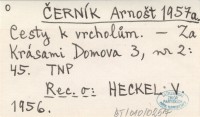 o ČERNÍK Arnošt 1957a.
Cesty k vrcholům. – Za
Krásami Domova 3, nr 2:
45. TNP
Rec. o: HECKEL V.
1956.